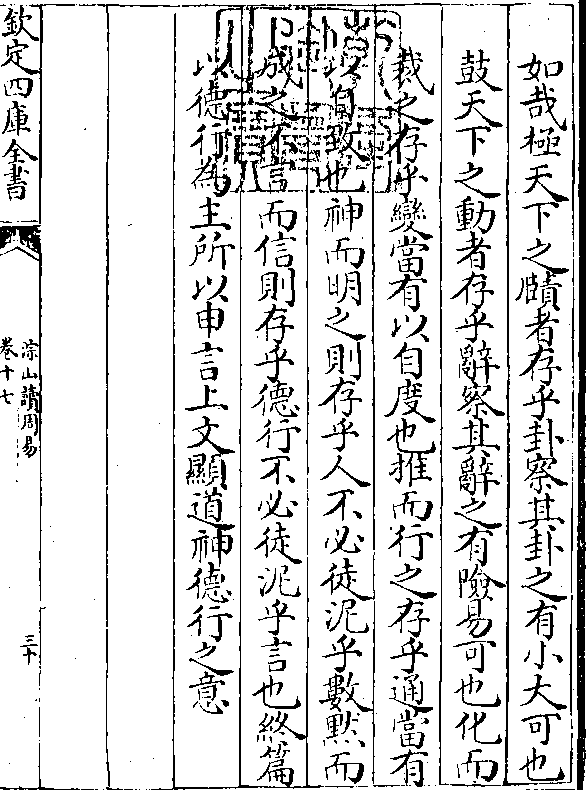 如哉極天下之賾者存乎卦察其卦之有小大可也
鼓天下之動者存乎辭察其辭之有險易可也化而
裁之存乎變當有以自度也推而行之存乎通當有
以自致也神而明之則存乎人不必徒泥乎數黙而
成之不言而信則存乎德行不必徒泥乎言也終篇
以德行為主所以申言上文顯道神德行之意
欽定四庫全書
淙山讀周易
卷十七
三十